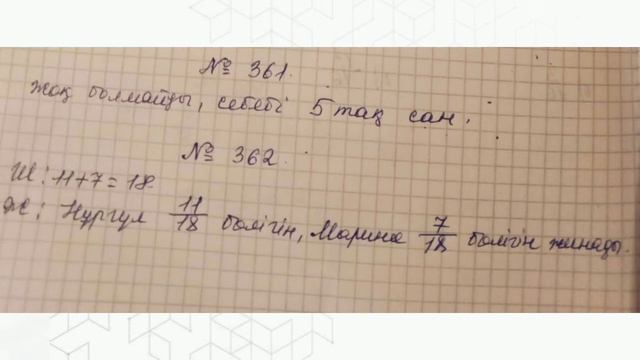 № 361.
Жоқ болмайды, себебі 5 тақ сан.
№ 362.
Ш: 11+7=18.
Ж: Нұргүл 11/18 бөлігін, Марина 7/18 бөлігін жинады.